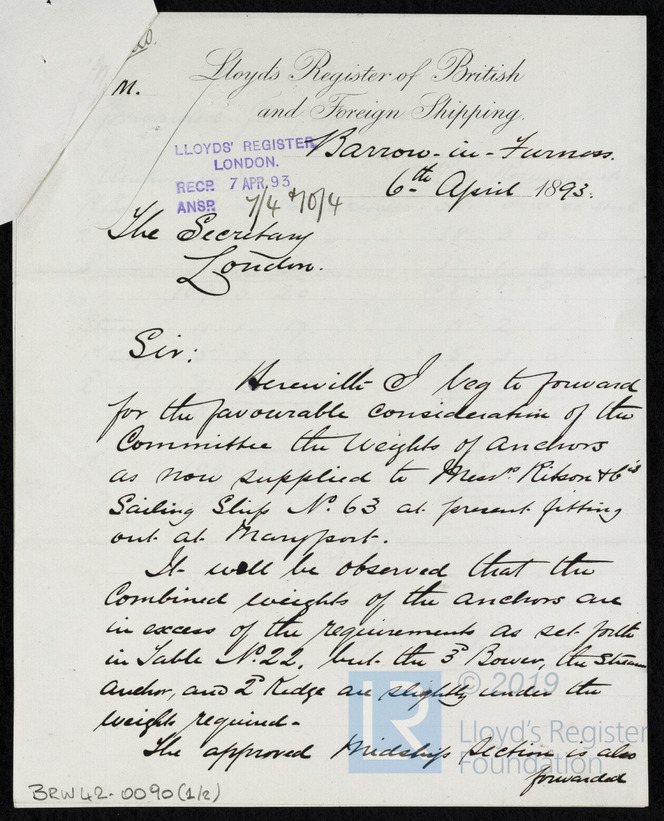 M.
Lloyd's Register of British
and Foreign Shipping.
LLOYDS' REGISTER
LONDON.
RECD. 7 APR. 93
ANSD. 7/4 & 10/4
Barrow-in-Furness.
6th April 1893.
The Secretary
London.
Sir:
Herewith I beg to forward
for the favourable consideration of the
Committee the weights of anchors
as now supplied to Messrs Ritson & Co's
Sailing Ship No. 63 at present fitting
out at Maryport.
It will be observed that the
combined weights of the anchors are
in excess of the requirements as set forth
in Table No. 22, but the 3d Bower, the Stream
anchor, and 2d Kedge are slightly under the
weights required -
The approved Midship Section is also
forwarded
BRW42-0090(1/2)
© 2019
LR
Lloyd's Register
Foundation